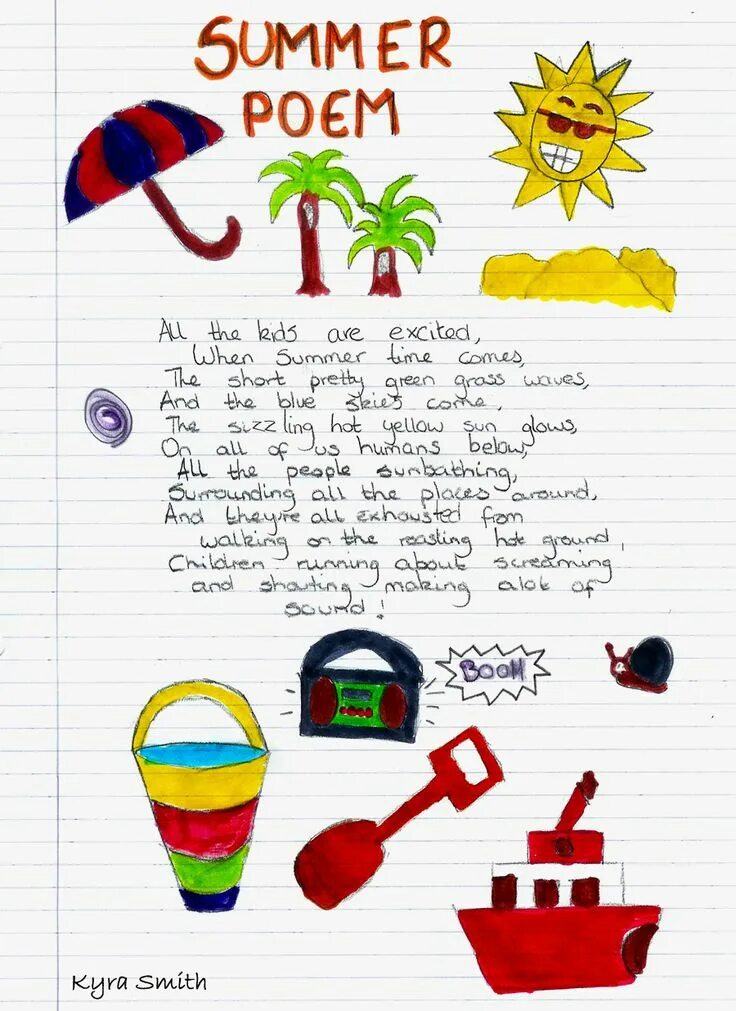 SUMMER
POEM
All the kids are excited,
When Summer time comes,
The short pretty green grass waves,
And the blue skies come,
The sizzling hot yellow sun glows,
On all of us humans below,
All the people sunbathing,
Surrounding all the places around,
And they're all exhausted from
walking on the roasting hot ground,
Children running about screaming
and shouting making alot of
sound!
BOOM
Kyra Smith